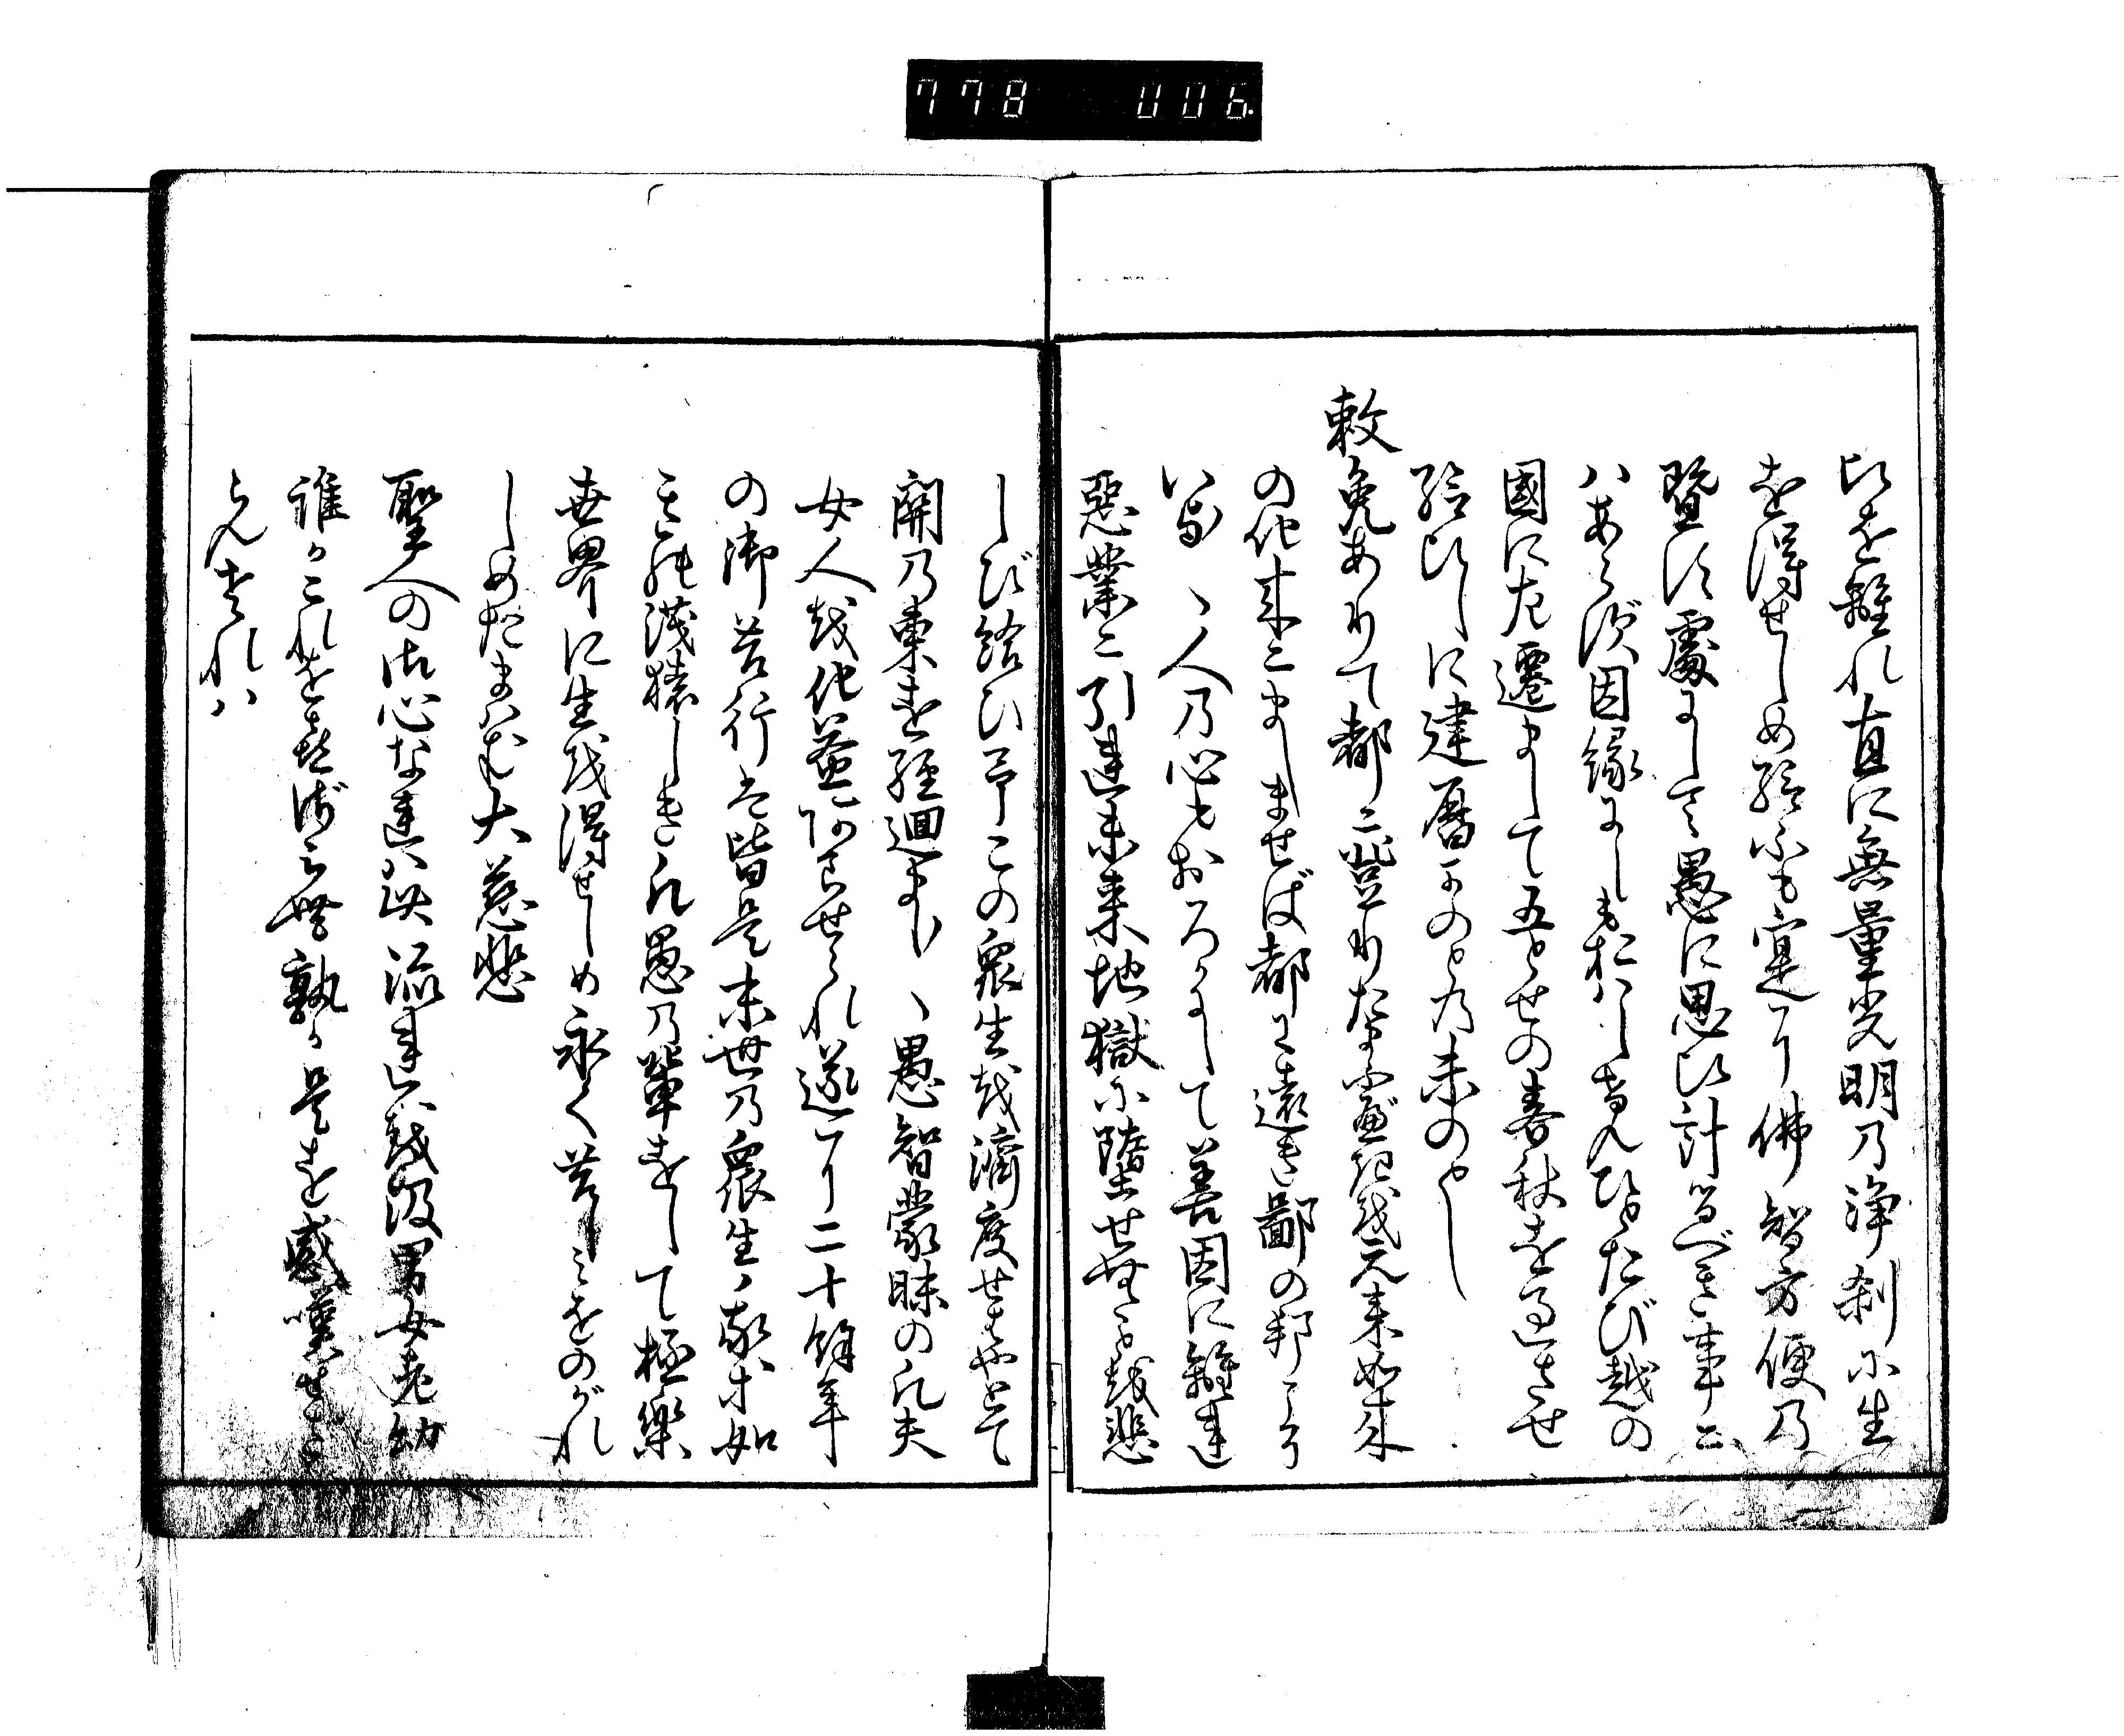 778 006.
ひを離れ直に無量光明乃浄刹に生
を得せしめ給ふも寔に佛智方便乃
曁ぶ處にして愚に思ひ計るべき事に
ハあらず因縁にしもおハしけんひとたび越の
國に左遷まして五とせの春秋を過させ
給ひしに建暦二のとし乃未のとし
敕免ありて都に登りたまふべきを元来如来
の化来にましませば都に遠き鄙の邦々
いまゝ人乃心もおろかにして善因に離れ
惡業に引連未来地獄に墮せむことを悲
しび給ひ予この衆生を濟度せばやとて
關乃東を經廻まし々愚智蒙昧の凡夫
女人を化益ましませられ遂に二十餘年
の御苦行も皆是末世乃衆生我才如
き浅猿しき凡愚乃輩をして極樂
世界に生を得せしめ永く苦しミをのがれ
しめたまハむ大慈悲
聖人の御心なれハ此流れを汲男女老幼
誰かこれを喜ばざらむ孰か是を感嘆せざ
らんされハ